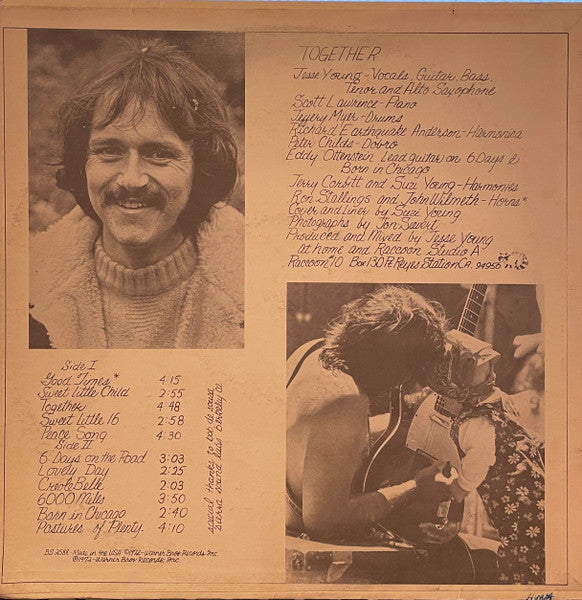 TOGETHER
Jesse Young - Vocals, Guitar, Bass,
Tenor and Alto Saxophone
Scott Lawrence - Piano
Jeffery Myer - Drums
Richard Earthquake Anderson - Harmonica
Peter Childs - Dobro
Eddy Ottenstein Lead guitar on 6 Days &
Born in Chicago
Jerry Corbitt and Suzi Young - Harmonies
Ron Stallings and John Wilmeth - Horns*
Cover and Liner by Suzi Young
Photographs by Jon Sievert
Produced and Mixed by Jesse Young
at home and Raccoon Studio A
Raccoon #10 Box 130 Pt. Reyes Station CA. 94956
Side I
Good Times* 4:15
Sweet Little Child 2:55
Together 4:48
Sweet Little 16 2:58
Peace Song 4:30
Side II
6 Days on the Road 3:03
Lovely Day 2:25
Creole Belle 2:03
6000 Miles 3:50
Born in Chicago 2:40
Pastures of Plenty 4:10
special thanks to bob de sousa
sierra sound labs berkeley ca.
BS 2588 - Made in the USA ©1972 - Warner Bros. Records Inc.
℗1972 - Warner Bros. Records, Inc.